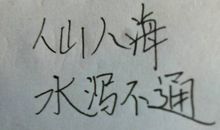 人山人海
水泻不通